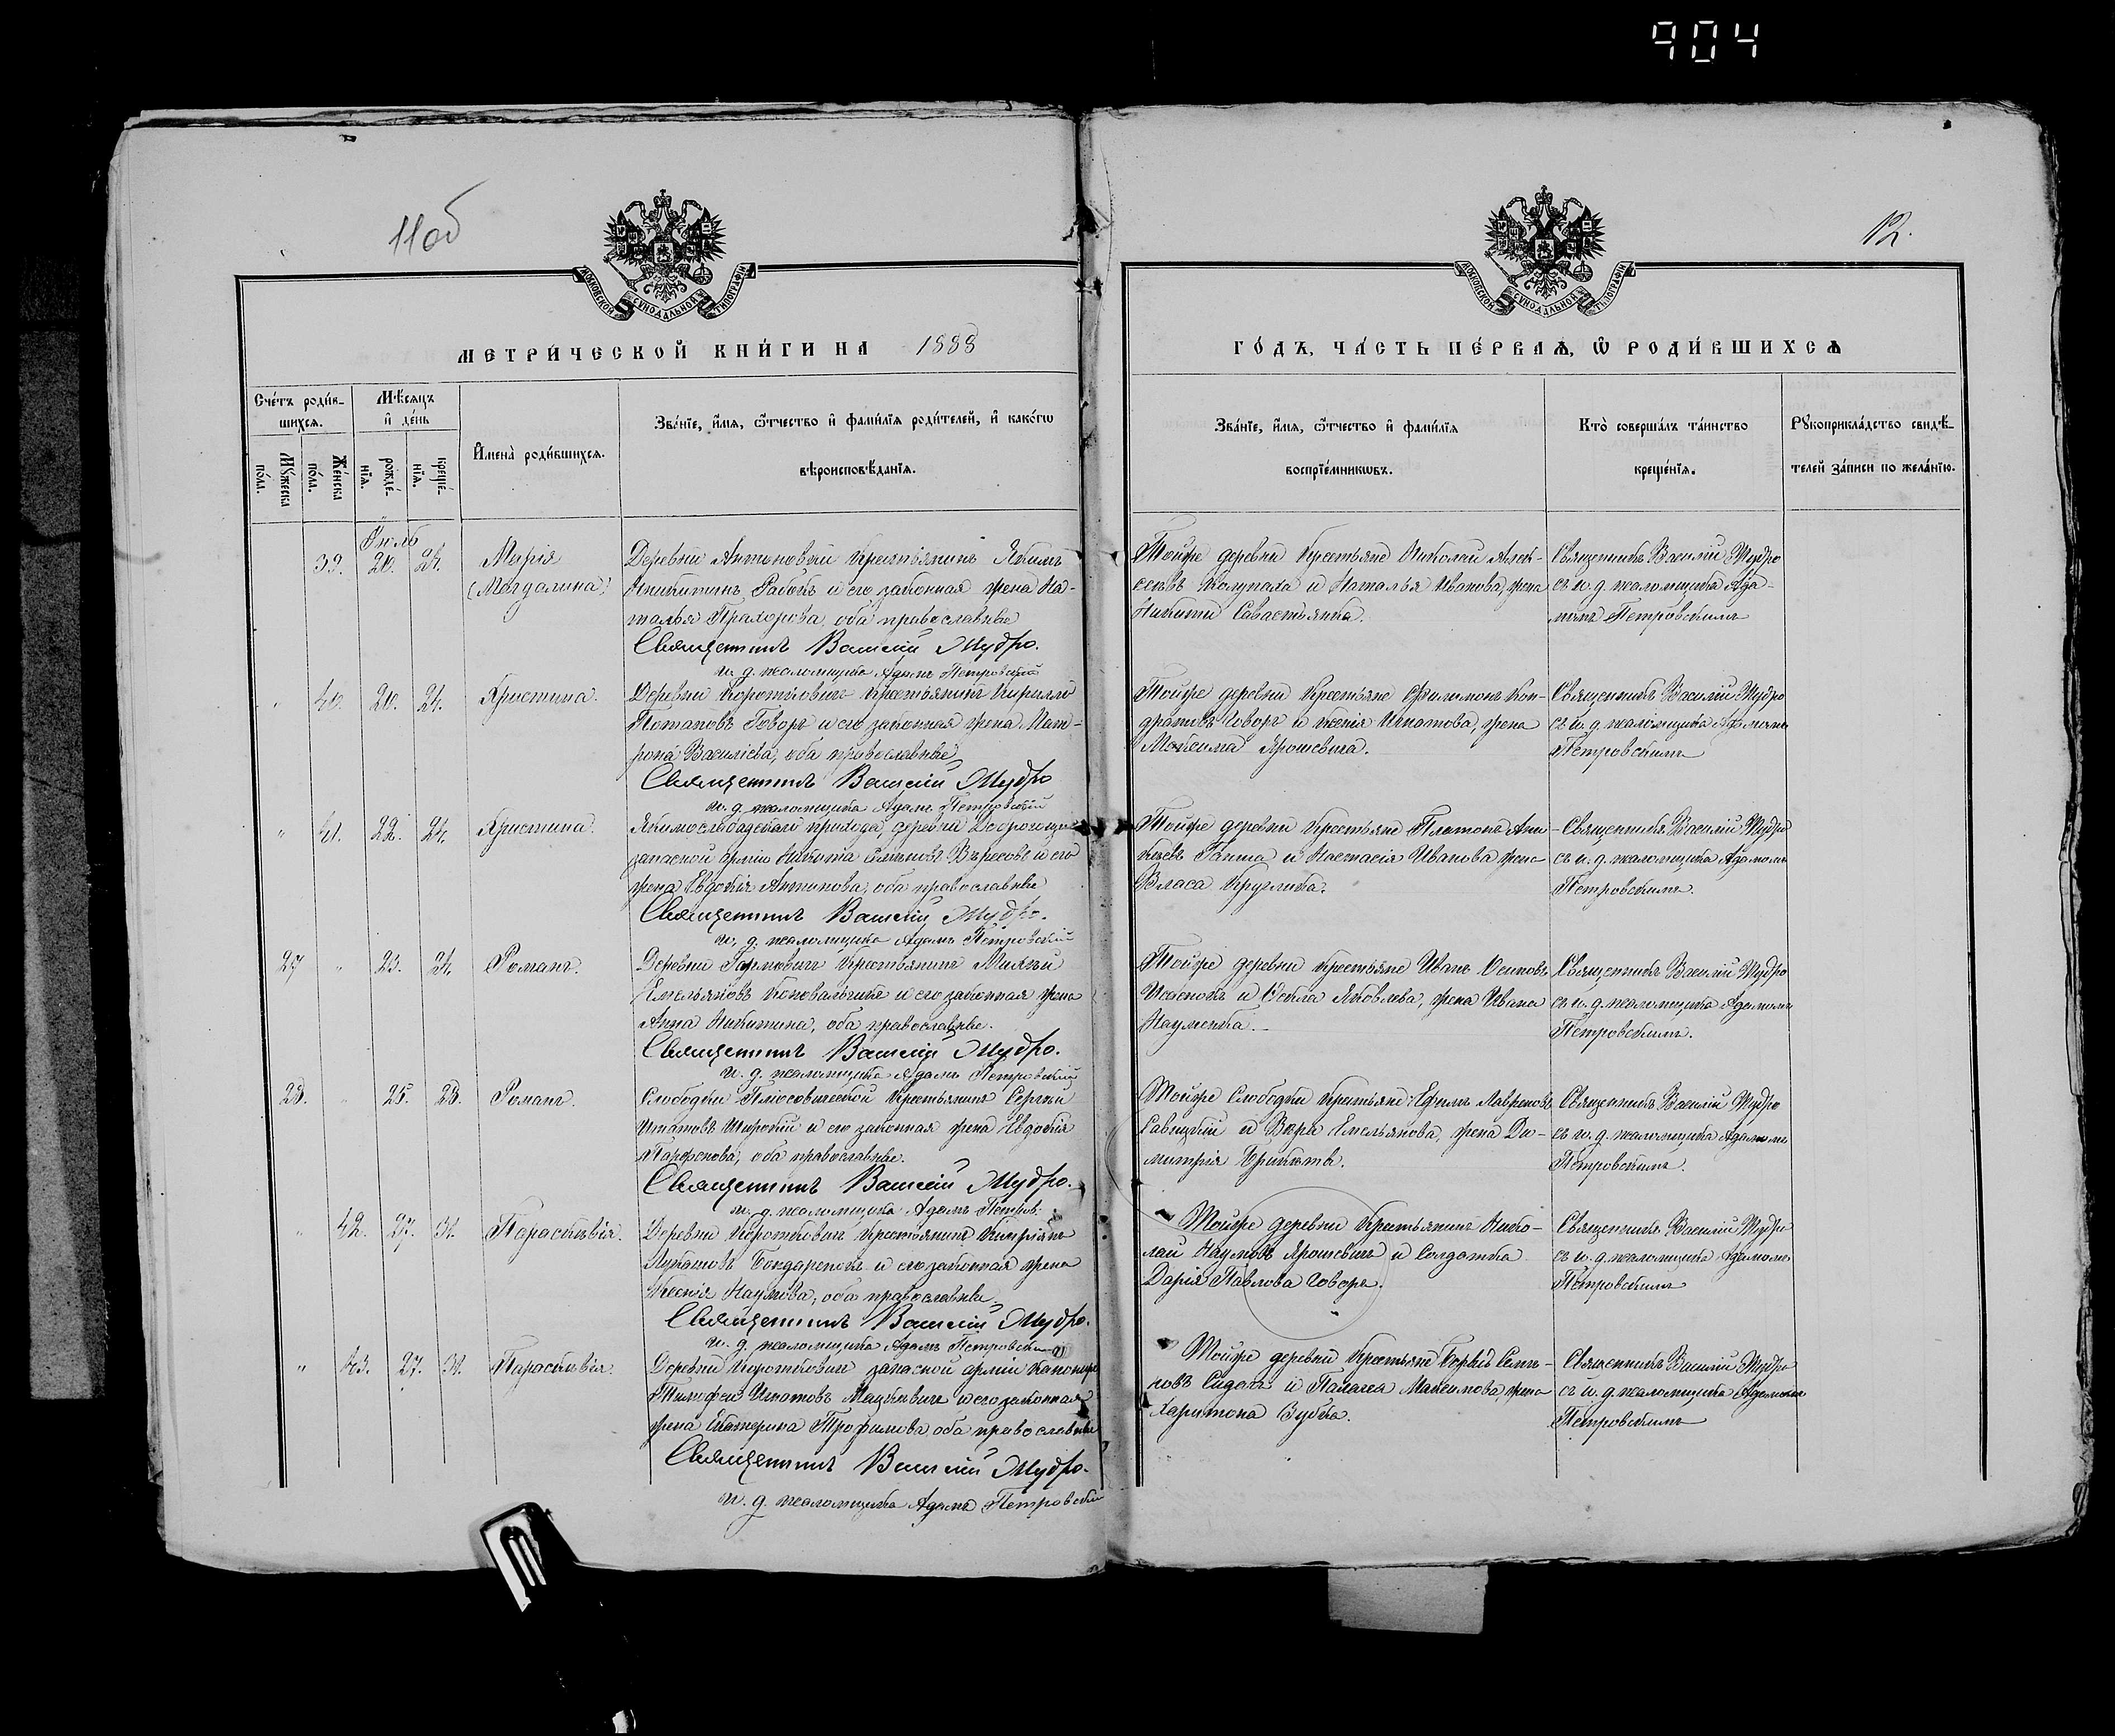 904
11об
12.
МОСКОВСКОЙ СѴНОДАЛЬНОЙ ТИПОГРАФІИ
МОСКОВСКОЙ СѴНОДАЛЬНОЙ ТИПОГРАФІИ
МЕТРИ́ЧЕСКОЙ КНИ́ГИ НА 1888
ГО́ДЪ, ЧА́СТЬ ПЕ́РВАѦ, Ѡ҆ РОДИ́ВШИХСѦ
Сче́тъ роди́в-
шихсѧ.
Мѣ́сѧцъ
и҆ де́нь
Мꙋ́жеска
по́ла.
Же́нска
по́ла.
рожде́-
нїѧ.
креще́-
нїѧ.
И҆мена̀ роди́вшихсѧ.
Зва́нїе, и҆́мѧ, ѻ҆́тчество и҆ фами́лїѧ роди́телей, и҆ како́гѡ
вѣроисповѣ́данїѧ.
Зва́нїе, и҆́мѧ, ѻ҆́тчество и҆ фами́лїѧ
воспрїе́мникѡвъ.
Кто̀ соверша́лъ та́инство
креще́нїѧ.
Рꙋкоприкла́дство свидѣ́-
телей за́писи по жела́нїю.
Іюль
39. 20. 24. Марія
(Магдалина)
Деревни Антоновки крестьянинъ Якимъ
Никитинъ Рабокъ и его законная жена На-
талья Прахорова, оба православные
Священникъ Василій Мудро.
и. д. псаломщика Адамъ Петровскій
Тойже деревни крестьяне Николай Алек-
сеевъ Колупаха и Наталья Иванова, жена
Никиты Савастьянка.
Священникъ Василій Мудро
съ и. д. псаломщика Ада-
момъ Петровскимъ
" 40. 20. 24. Христина.
Деревни Коротковичъ крестьянинъ Кирилло
Потаповъ Говоръ и его законная жена Мат-
рона Василіева, оба православные
Священникъ Василій Мудро
и. д. псаломщика Адамъ Петровскій
Тойже деревни крестьяне Филимонъ Кон-
дратовъ Говоръ и Ксенія Игнатова, жена
Максима Ярошевича.
Священникъ Василій Мудро
съ и. д. псаломщика Адамомъ
Петровскимъ
" 41. 22. 24. Христина.
прихода, деревни
запасной арміи Никита и его
жена Евдокія Антонова, оба православные
Священникъ Василій Мудро.
и. д. псаломщика Адамъ Петровскій
Тойже деревни крестьяне Платонъ
Ганша и Настасія Иванова жена
Власа Круглика.
Священникъ Василій Мудро
съ и. д. псаломщика Адамомъ
Петровскимъ.
27 " 23. 24. Романъ.
Деревни крестьянинъ
Емельяновъ Коновальчикъ и его законная жена
Анна Никитина, оба православные.
Священникъ Василій Мудро.
и. д. псаломщика Адамъ Петровскій
Тойже деревни крестьяне Иванъ Осиповъ
и Ѳекла Яковлева, жена Ивана
Науменка.
Священникъ Василій Мудро
съ и. д. псаломщика Адамомъ
Петровскимъ.
28. " 25. 28. Романъ.
Слободки крестьянинъ Сергѣй
Игнатовъ Широкій и его законная жена Евдокія
Парфенова, оба православные.
Священникъ Василій Мудро.
и. д. псаломщика Адамъ Петров.
Тойже Слободки крестьяне Ефимъ Лавреновъ
Савицкій и Вѣра Емельянова, жена Ди-
митрія
Священникъ Василій Мудро
съ и. д. псаломщика Адамомъ
Петровскимъ.
" 42. 27. 31. Параскевія.
Деревни Коротковичъ крестьянинъ Кипріянъ
Лукашовъ Бондаренокъ и его законная жена
Ксенія Наумова, оба православные.
Священникъ Василій Мудро.
и. д. псаломщика Адамъ Петровскій
Тойже деревни крестьянинъ Нико-
лай Наумовъ Ярошевичъ и Солдатка
Дарія Павлова Говоръ.
Священникъ Василій Мудро
съ и. д. псаломщика Адамомъ
Петровскимъ
" 43. 27. 31. Параскевія.
Деревни Коротковичъ запасной арміи
Тимофей Игнатовъ Мацкевичъ и его законная
жена Екатерина Трофимова, оба православные
Священникъ Василій Мудро.
и. д. псаломщика Адамъ Петровскій
Тойже деревни крестьяне
и Палагея Максимова, жена
Харитона Зубка.
Священникъ Василій Мудро
съ и. д. псаломщика Адамомъ
Петровскимъ